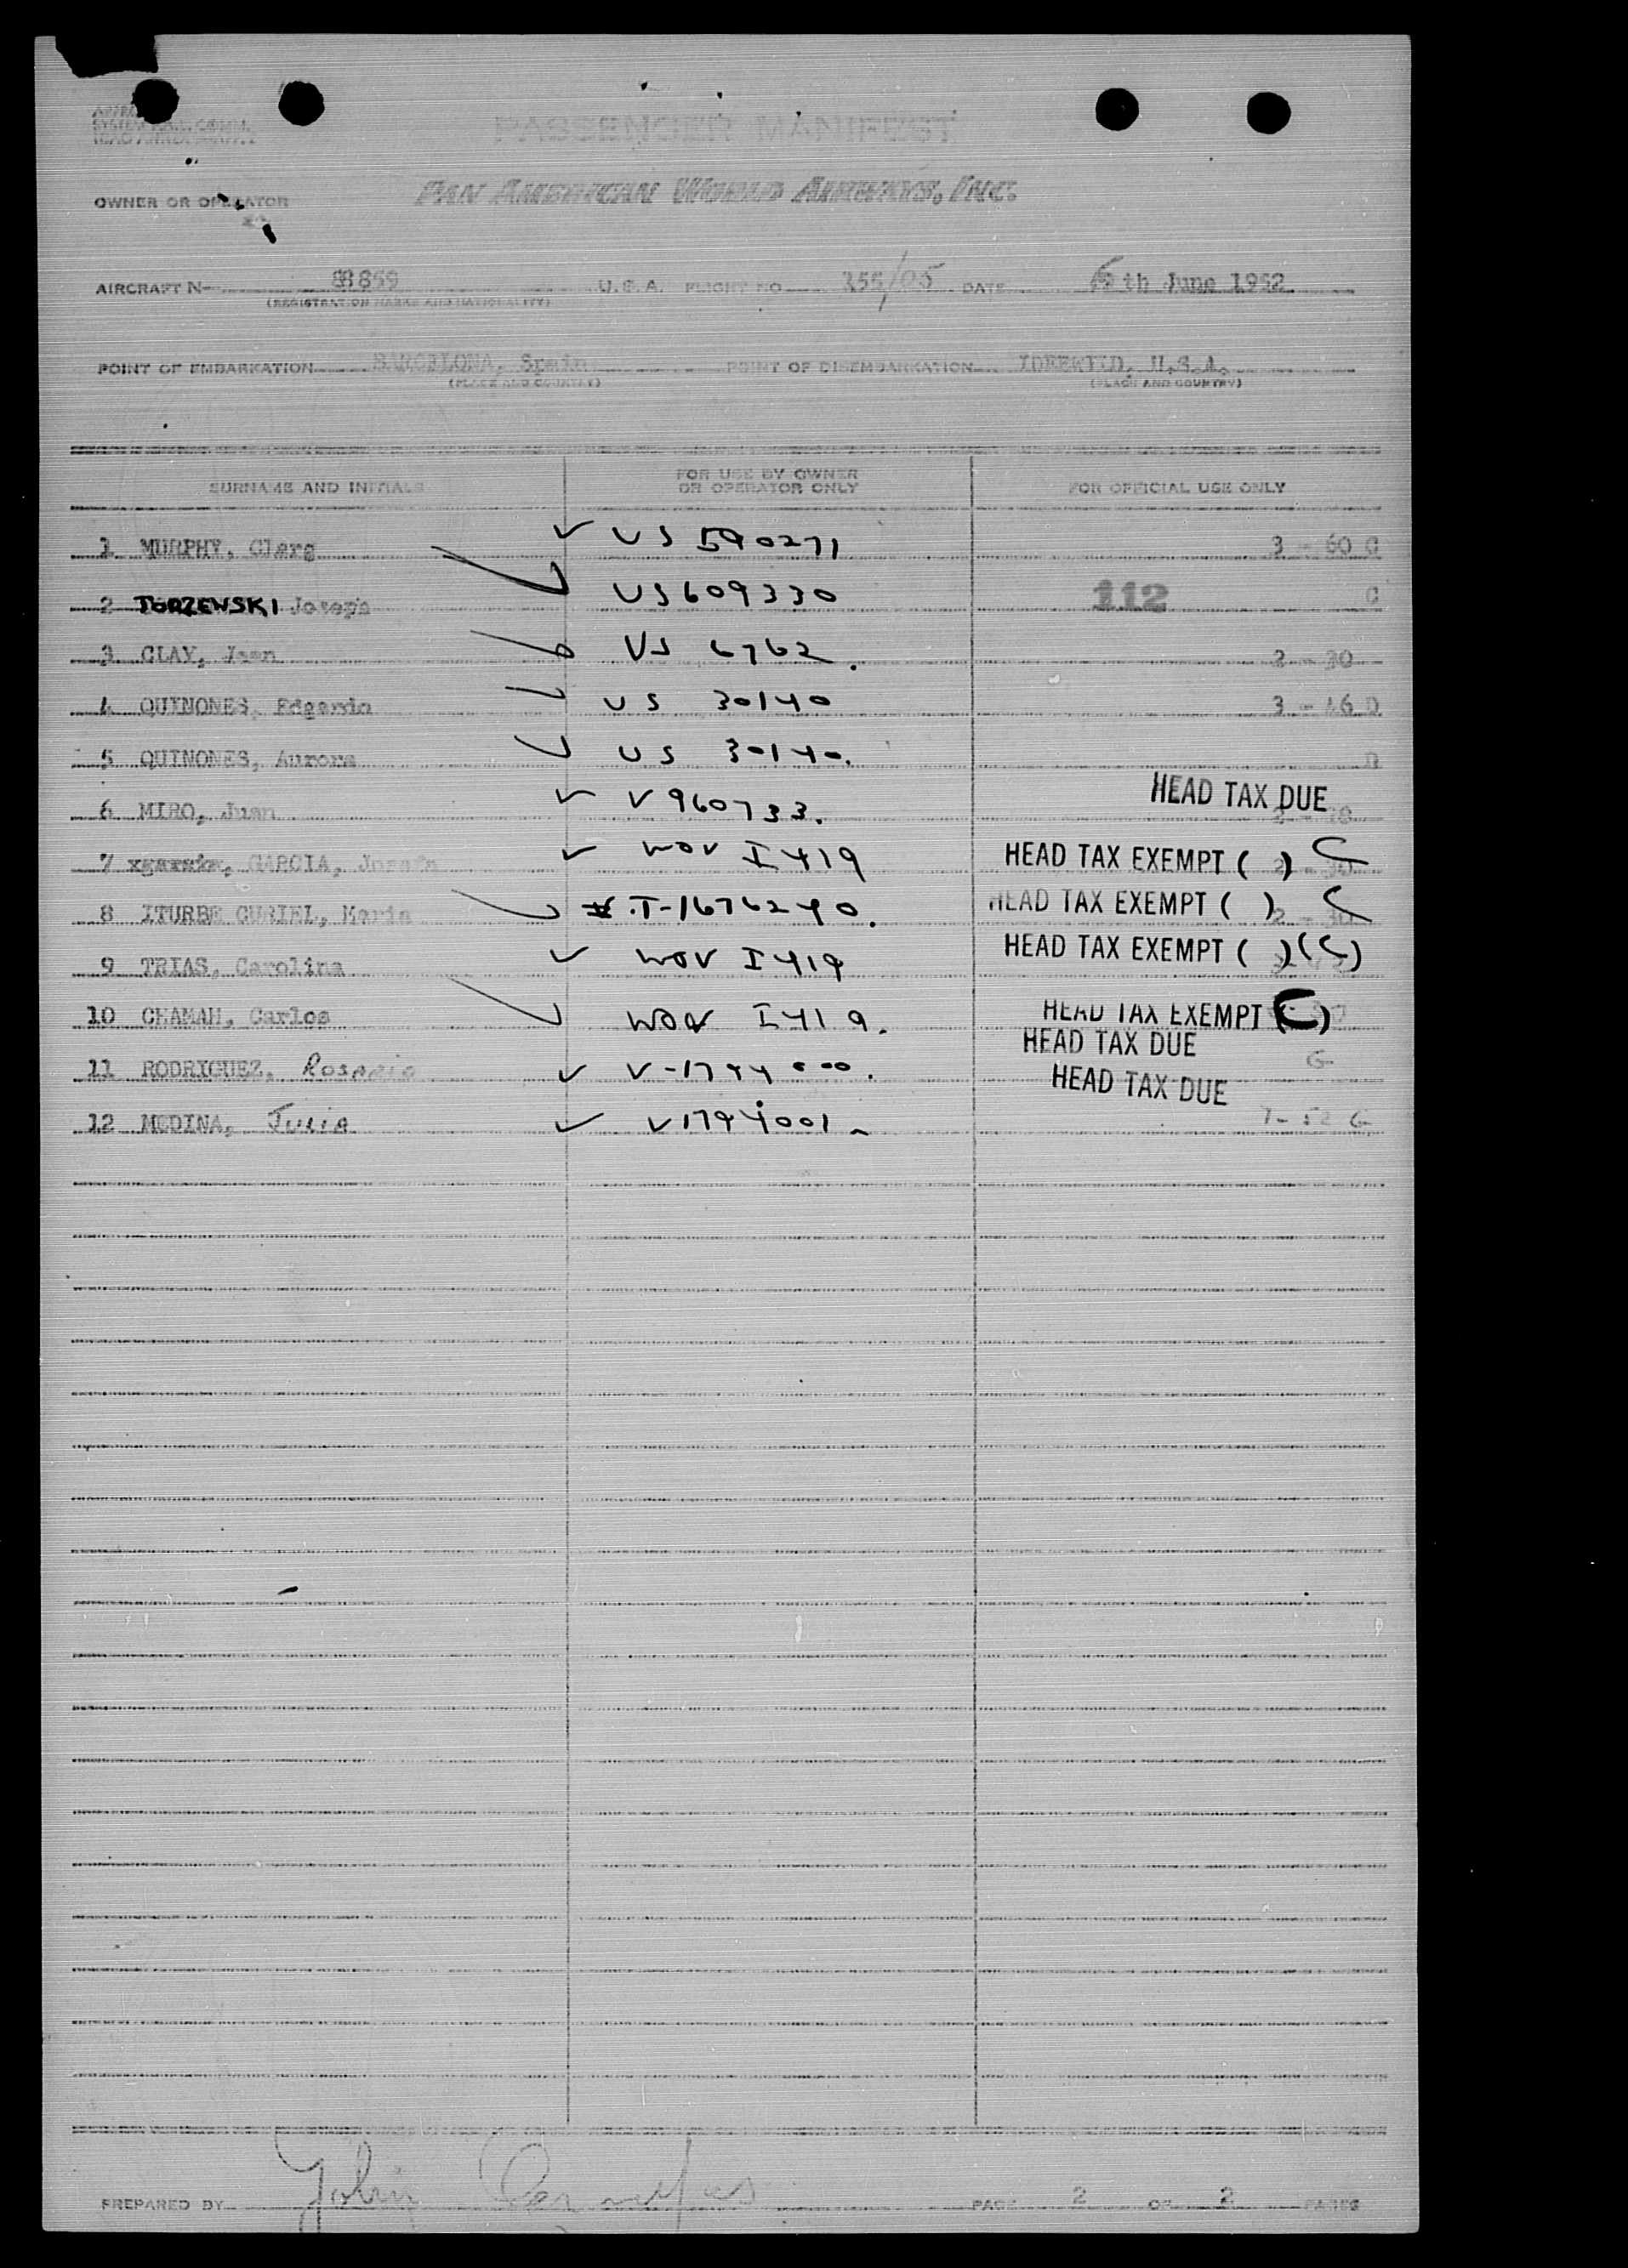 PASSENGER MANIFEST
OWNER OR OPERATOR PAN AMERICAN WORLD AIRWAYS, INC.
AIRCRAFT N- 88859 U.S.A. FLIGHT NO 155/05 DATE 5th June 1952
(REGISTRATION MARKS AND NATIONALITY)
POINT OF EMBARKATION BARCELONA, Spain POINT OF DISEMBARKATION IDLEWILD, U.S.A.
(PLACE AND COUNTRY) (PLACE AND COUNTRY)
SURNAME AND INITIALS FOR USE BY OWNER OR OPERATOR ONLY FOR OFFICIAL USE ONLY
1 MURPHY, Clara ✓ US 590271 3 - 60 C
2 TORZEWSKI Joseph US609330 112 C
3 CLAY, Jean US 6762. 2 - 30
4 QUINONES, Edgardo US 30140 3 - 46 D
5 QUINONES, Aurora US 30140. D
6 MIRO, Juan ✓ V960733. HEAD TAX DUE
7 GARCIA, Josefa ✓ WOV I419 HEAD TAX EXEMPT ( ) C
8 ITURBE CURIEL, Maria T-1676240. HEAD TAX EXEMPT ( ) C 2 - 30
9 TRIAS, Carolina ✓ WOV I419 HEAD TAX EXEMPT ( ) (C)
10 CHAMAH, Carlos WOV I419. HEAD TAX EXEMPT (C)
11 RODRIGUEZ, Rosario ✓ V-1794000. HEAD TAX DUE G
12 MEDINA, Julia ✓ V1794001 HEAD TAX DUE G
PREPARED BY John PAGE 2 OF 2 PAGES